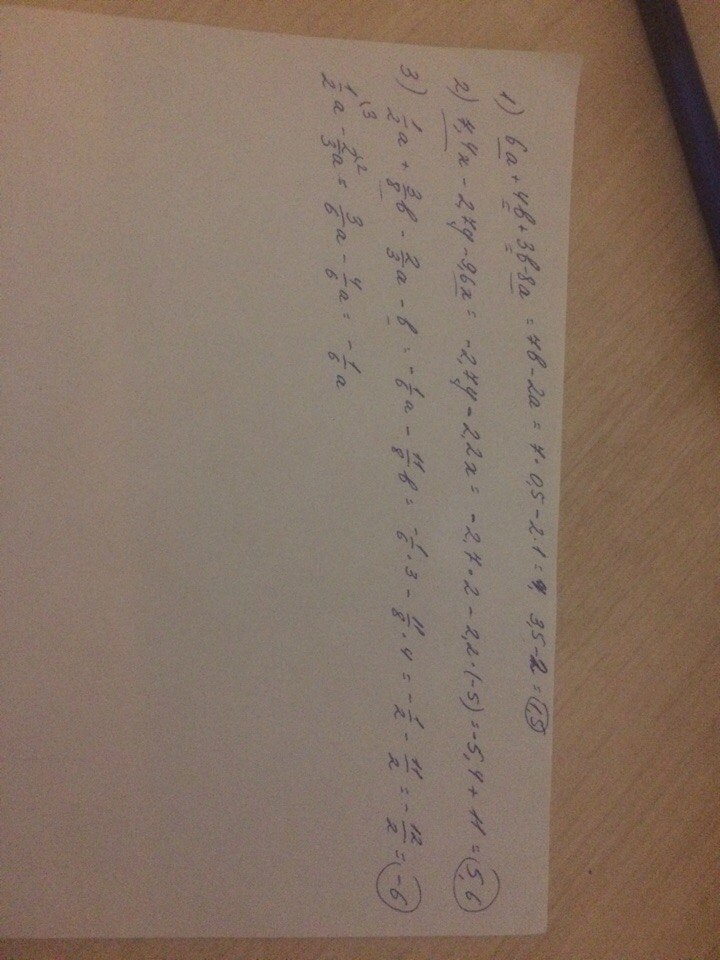 1) 6a + 4b + 3b - 8a = 7b - 2a = 7 · 0,5 - 2 · 1 = 3,5 - 2 = 1,5
2) 7,4x - 2,7y - 9,6x = -2,7y - 2,2x = -2,7 · 2 - 2,2 · (-5) = -5,4 + 11 = 5,6
3) 1/2 a + 3/8 b - 2/3 a - b = -1/6 a - 11/8 b = -1/6 · 3 - 11/8 · 4 = -1/2 - 11/2 = -12/2 = -6
1\3/2 a - 2\2/3 a = 3/6 a - 4/6 a = -1/6 a